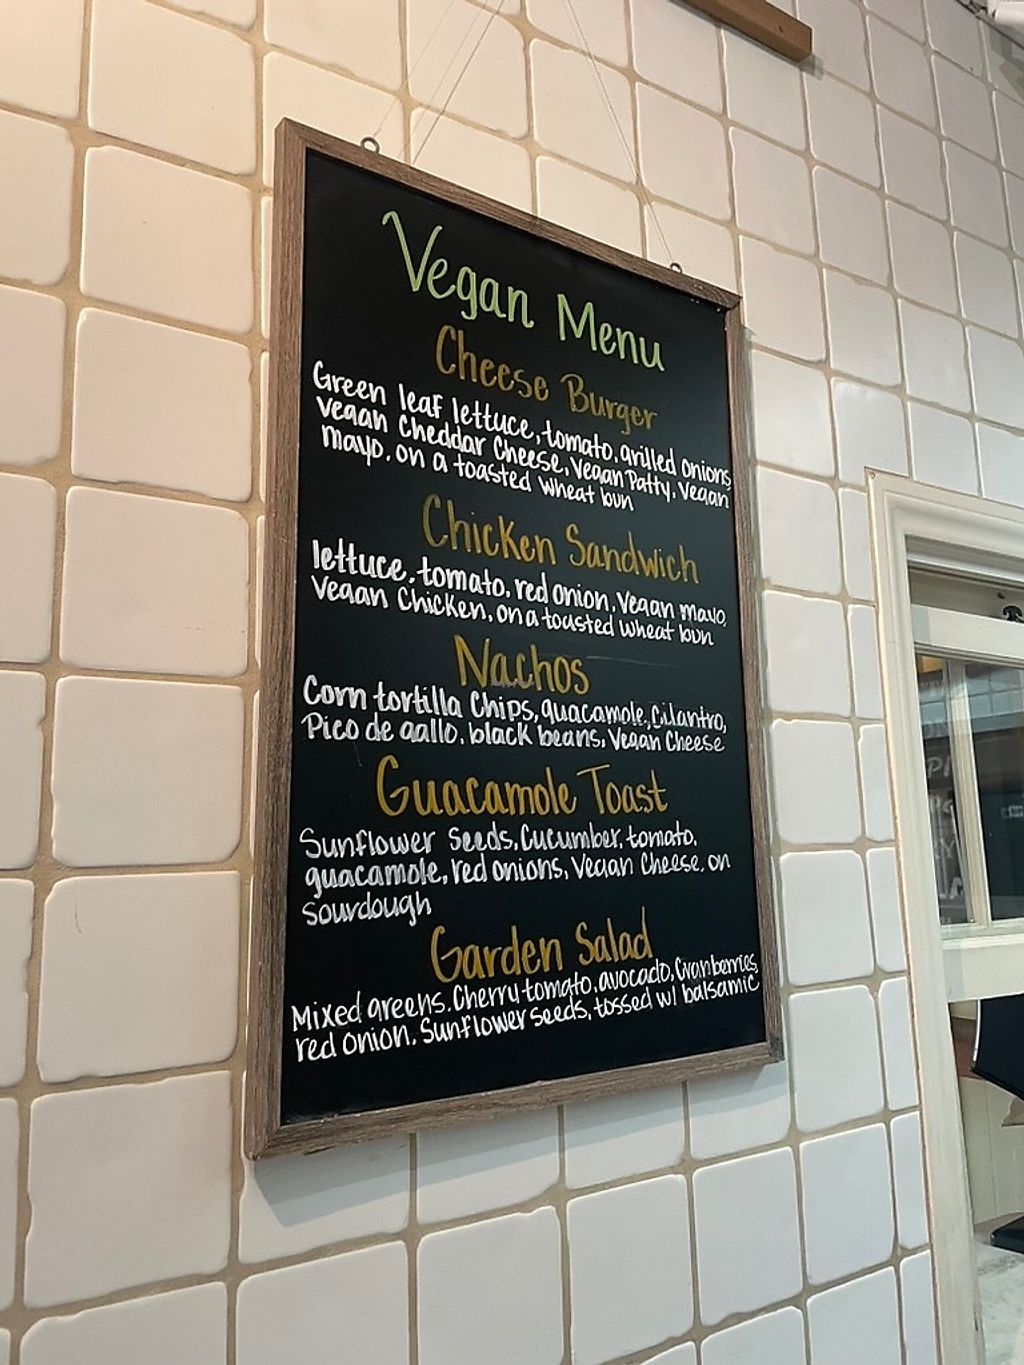 Vegan Menu
Cheese Burger
Green leaf lettuce, tomato, grilled onions
vegan Cheddar Cheese, Vegan Patty, Vegan
mayo, on a toasted wheat bun
Chicken Sandwich
lettuce, tomato, red onion, Vegan mayo,
Vegan Chicken, on a toasted wheat bun
Nachos
Corn tortilla Chips, guacamole, Cilantro,
Pico de gallo, black beans, Vegan Cheese
Guacamole Toast
Sunflower Seeds, Cucumber, tomato,
guacamole, red onions, Vegan Cheese, on
Sourdough
Garden Salad
Mixed greens, Cherry tomato, avocado, Cranberries,
red onion, Sunflower seeds, tossed w/ balsamic